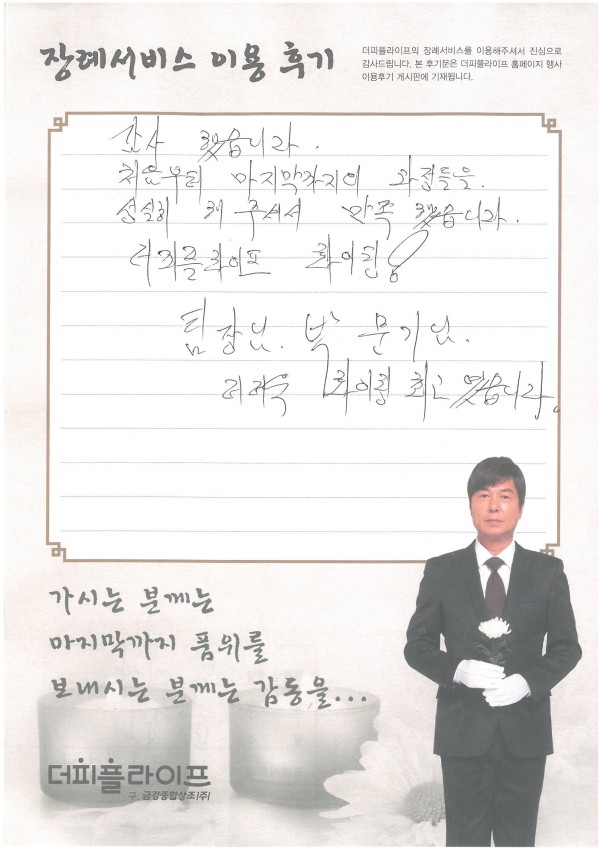 장례서비스 이용 후기
더피플라이프의 장례서비스를 이용해주셔서 진심으로
감사드립니다. 본 후기문은 더피플라이프 홈페이지 행사
이용후기 게시판에 기재됩니다.
감사 했습니다.
처음부터 마지막까지의 과정들을
성실히 해 주셔서 만족 했습니다.
더피플라이프 화이팅
팀장님. 박 문기님.
더더욱 화이팅 최고 였습니다.
가시는 분께는
마지막까지 품위를
보내시는 분께는 감동을...
더피플라이프
구. 금강종합상조(주)